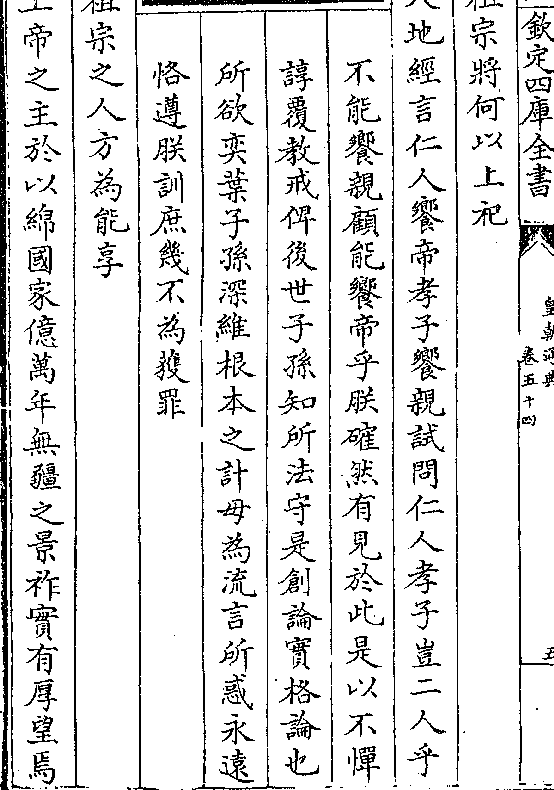 欽定四庫全書
皇朝通典
卷五十四
五
祖宗將何以上祀
天地經言仁人饗帝孝子饗親試問仁人孝子豈二人乎
不能饗親顧能饗帝乎朕確然有見於此是以不憚
諄覆教戒俾後世子孫知所法守是創論實格論也
所欲奕葉子孫深維根本之計毋為流言所惑永遠
恪遵朕訓庶幾不為獲罪
祖宗之人方為能享
上帝之主於以綿國家億萬年無疆之景祚實有厚望焉